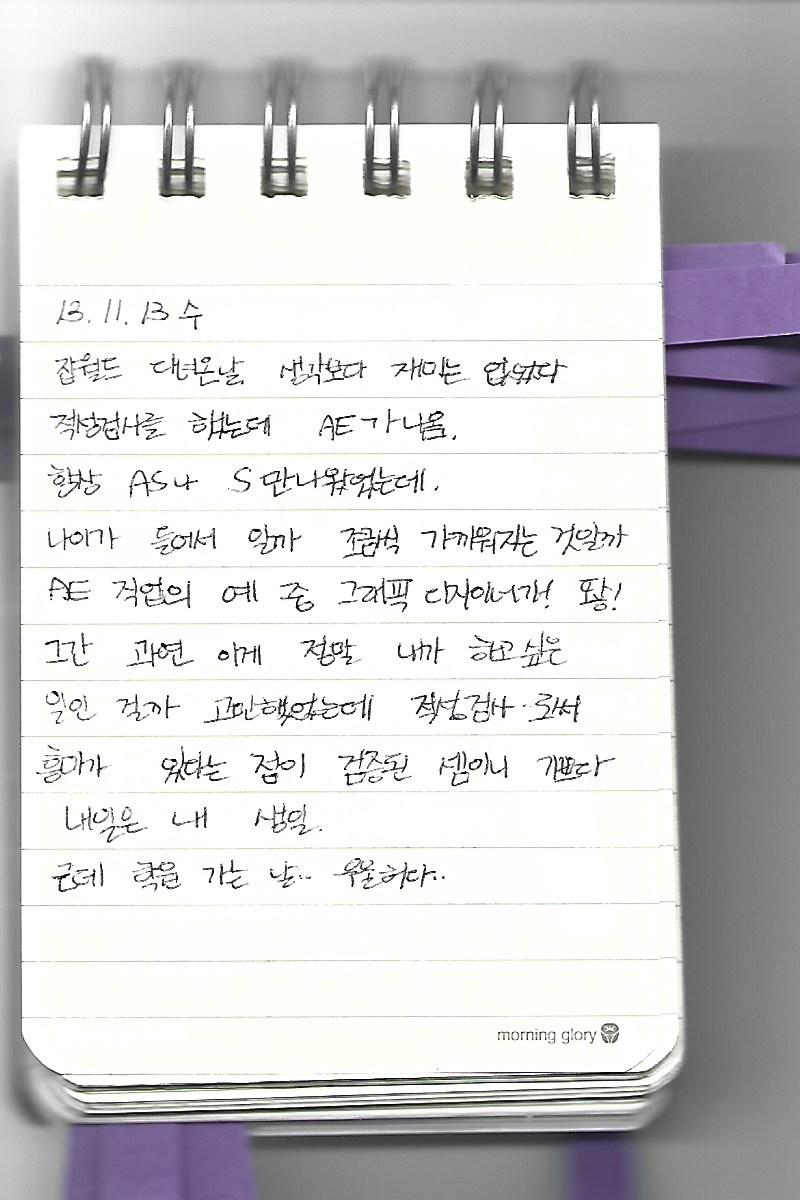 13. 11. 13 수
잡월드 다녀온날 생각보다 재미는 없었다
적성검사를 했는데 AE가 나옴.
항상 AS나 S만 나왔었는데.
나이가 들어서 일까 조금씩 가까워지는 것일까
AE 직업의 예 중 그래픽 디자이너가! 똬앟!
그간 과연 이게 정말 내가 하고싶은
일인 걸까 고민했었는데 적성검사·로써
흥미가 있다는 점이 검증된 셈이니 기쁘다
내일은 내 생일.
근데 학원 가는 날.. 우울하다..
morning glory